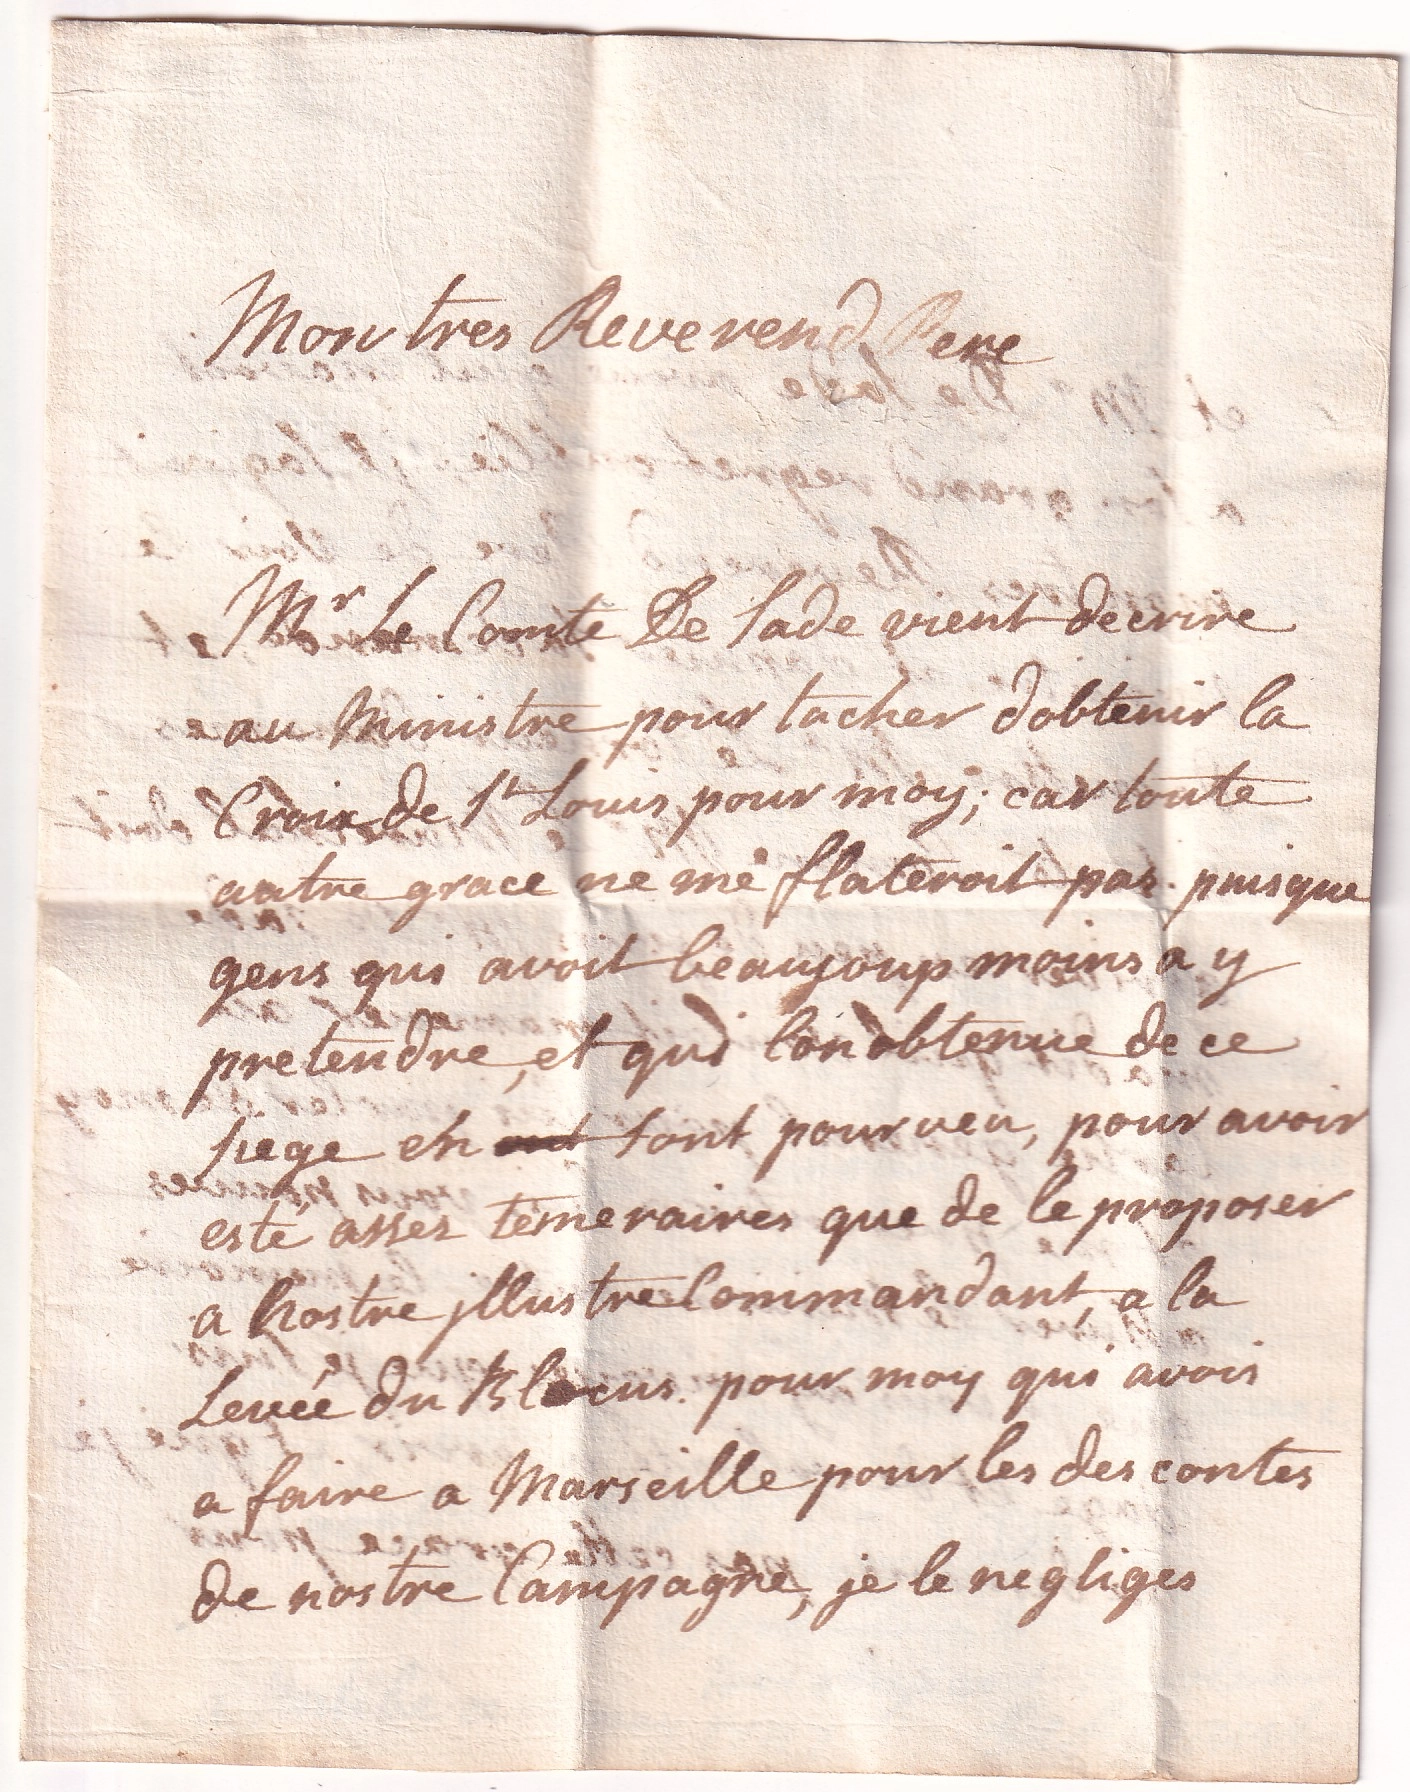 Mon tres Reverend Pere
Mr Le Comte De Sade vient decrire
au Ministre pour tacher dobtenir la
Croix de St Louis pour moy; car toute
autre grace ne me flateroit pas. puisque
gens qui avoit beaucoup moins a y
pretendre, et qui lon obtenue de ce
siege en sont pourveu, pour avoir
esté asses temeraires que de le proposer
a nostre jllustre Commandant, a la
Levée du Blocus. pour moy qui avois
a faire a Marseille pour les des contes
de nostre Campagne, je le negliges